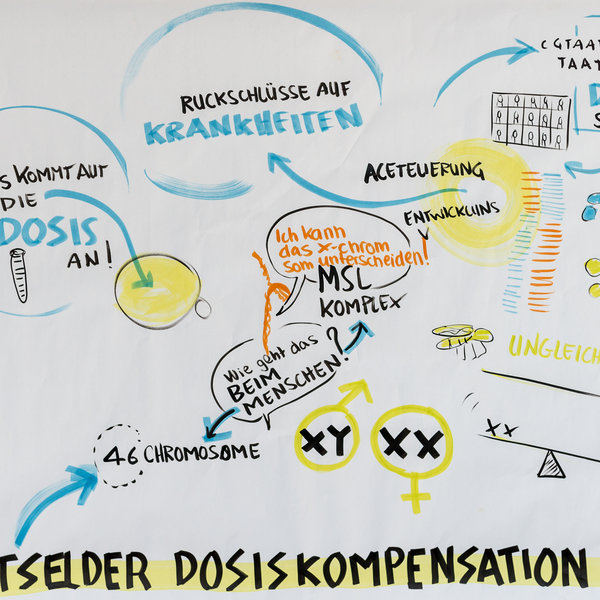 RUCKSCHLÜSSE AUF
KRANKHEITEN
CGTAAT
TAAT
S KOMMT AUF
DIE
DOSIS
AN!
ACETEUERUNG
ENTWICKLUNS
Ich kann
das X-chrom
som unterscheiden!
MSL
KOMPLEX
Wie geht das
BEIM
MENSCHEN?
46 CHROMOSOME
XY
XX
UNGLEICH
XX
TSELDER DOSISKOMPENSATION